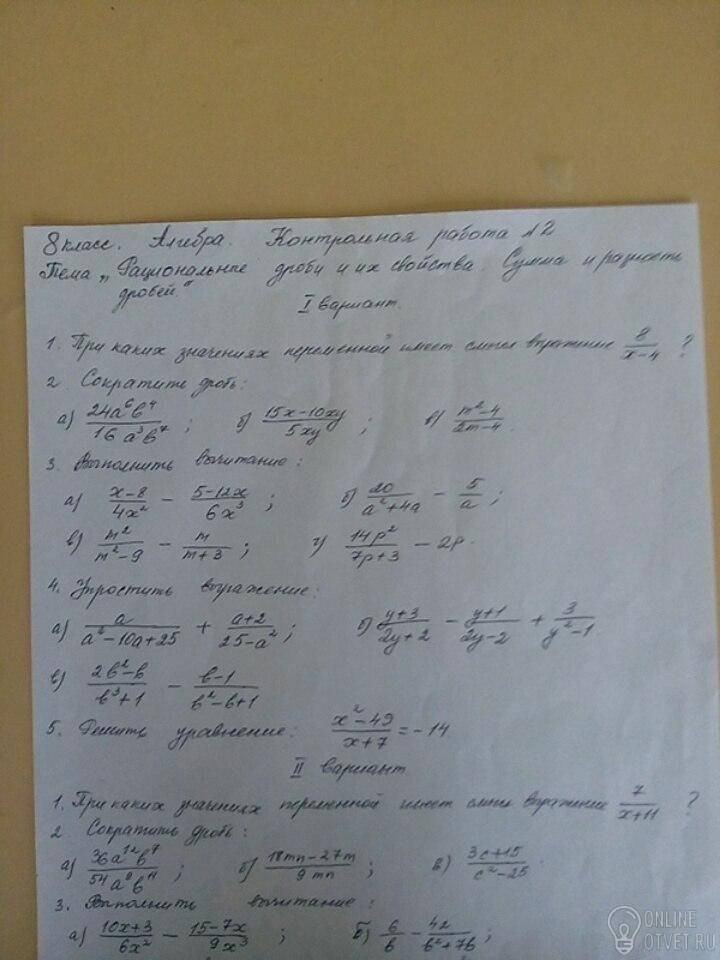 8 класс. Алгебра. Контрольная работа №2
Тема „Рациональные дроби и их свойства. Сумма и разность
дробей."
I вариант.
1. При каких значениях переменной имеет смысл выражение 8/(x-4) ?
2. Сократите дробь:
а) 24a⁶b⁴/16a³b⁷ ; б) (15x-10xy)/5xy ; в) (m²-4)/(2m-4).
3. Выполнить вычитание:
а) (x-8)/4x² - (5-12x)/6x³ ; б) 20/(a²+4a) - 5/a ;
в) m²/(m²-9) - m/(m+3) ; г) 14p²/(7p+3) - 2p.
4. Упростить выражение:
а) a/(a²-10a+25) + (a+2)/(25-a²) ; б) (y+3)/(2y+2) - (y+1)/(2y-2) + 3/(y²-1)
в) (2b²-b)/(b³+1) - (b-1)/(b²-b+1)
5. Решить уравнение: (x²-49)/(x+7) = -14.
II вариант
1. При каких значениях переменной имеет смысл выражение 7/(x+11) ?
2. Сократить дробь:
а) 36a¹²b⁷/54a⁹b¹¹ ; б) (18mn-27m)/9mn ; в) (3c+15)/(c²-25).
3. Выполнить вычитание:
а) (10x+3)/6x² - (15-7x)/9x³ ; б) 6/b - 42/(b²+7b) ;
ONLINE
OTVET.RU